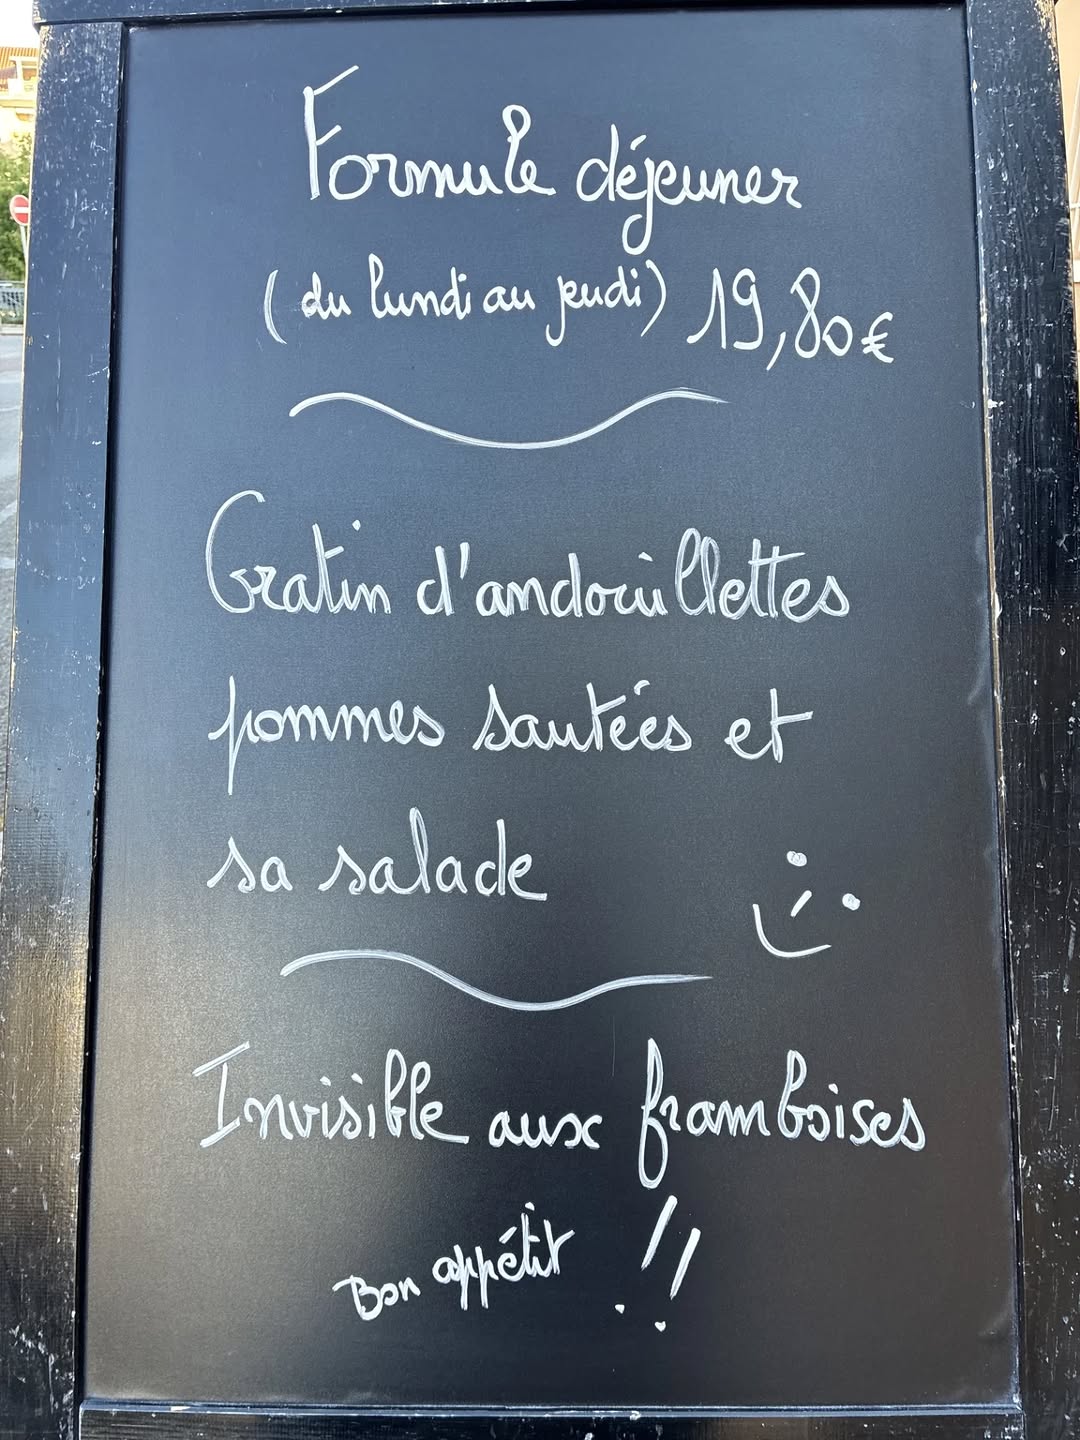 Formule déjeuner
(du lundi au jeudi) 19,80€
Gratin d'andouillettes
pommes sautées et
sa salade
Invisible aux framboises
Bon appétit !!